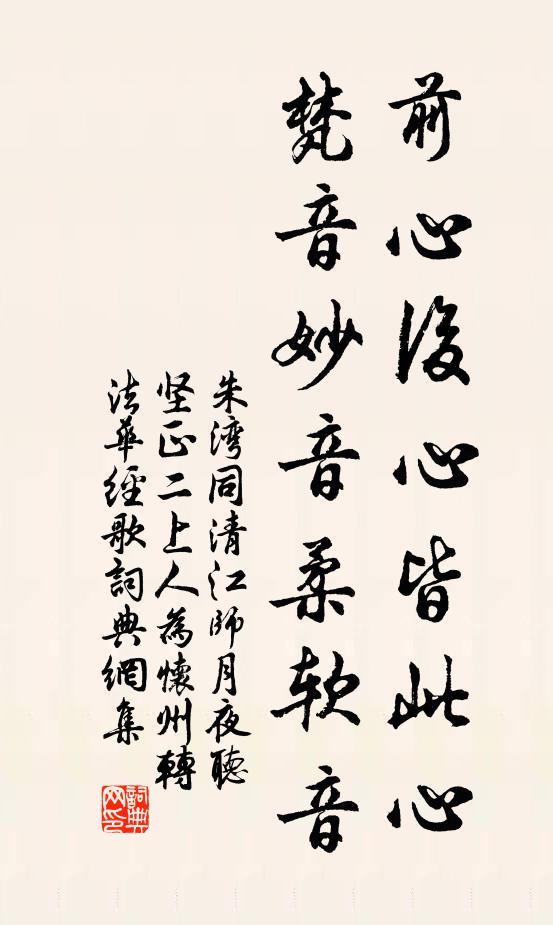 前心後心皆此心
梵音妙音柔軟音
朱湾同清江師月夜聽
坚正二上人為懷州轉
法華經歌詞典網集
詞典网印